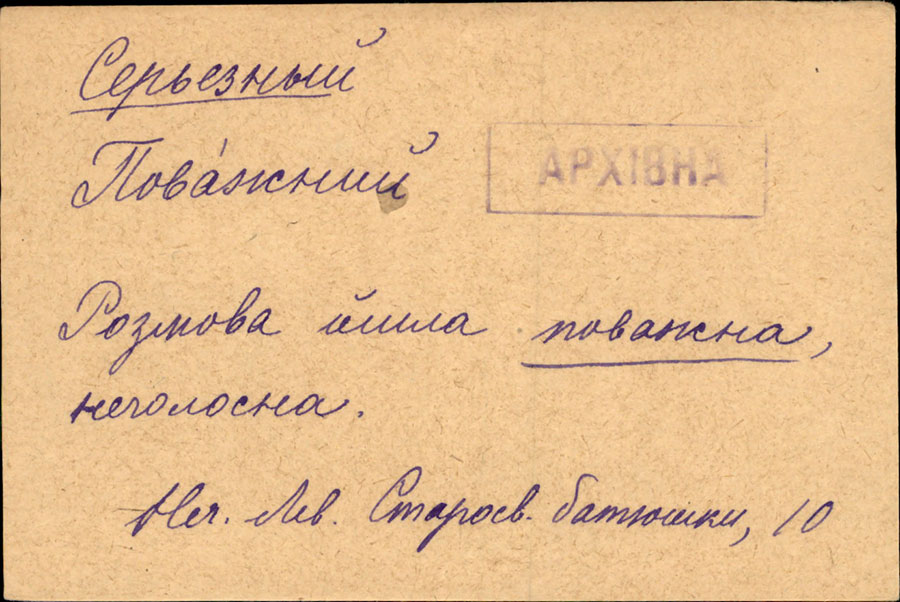 Серьезный
Пова́жний
АРХІВНА
Розмова йшла поважна,
неголосна.
Неч. Лев. Старосв. батюшки, 10